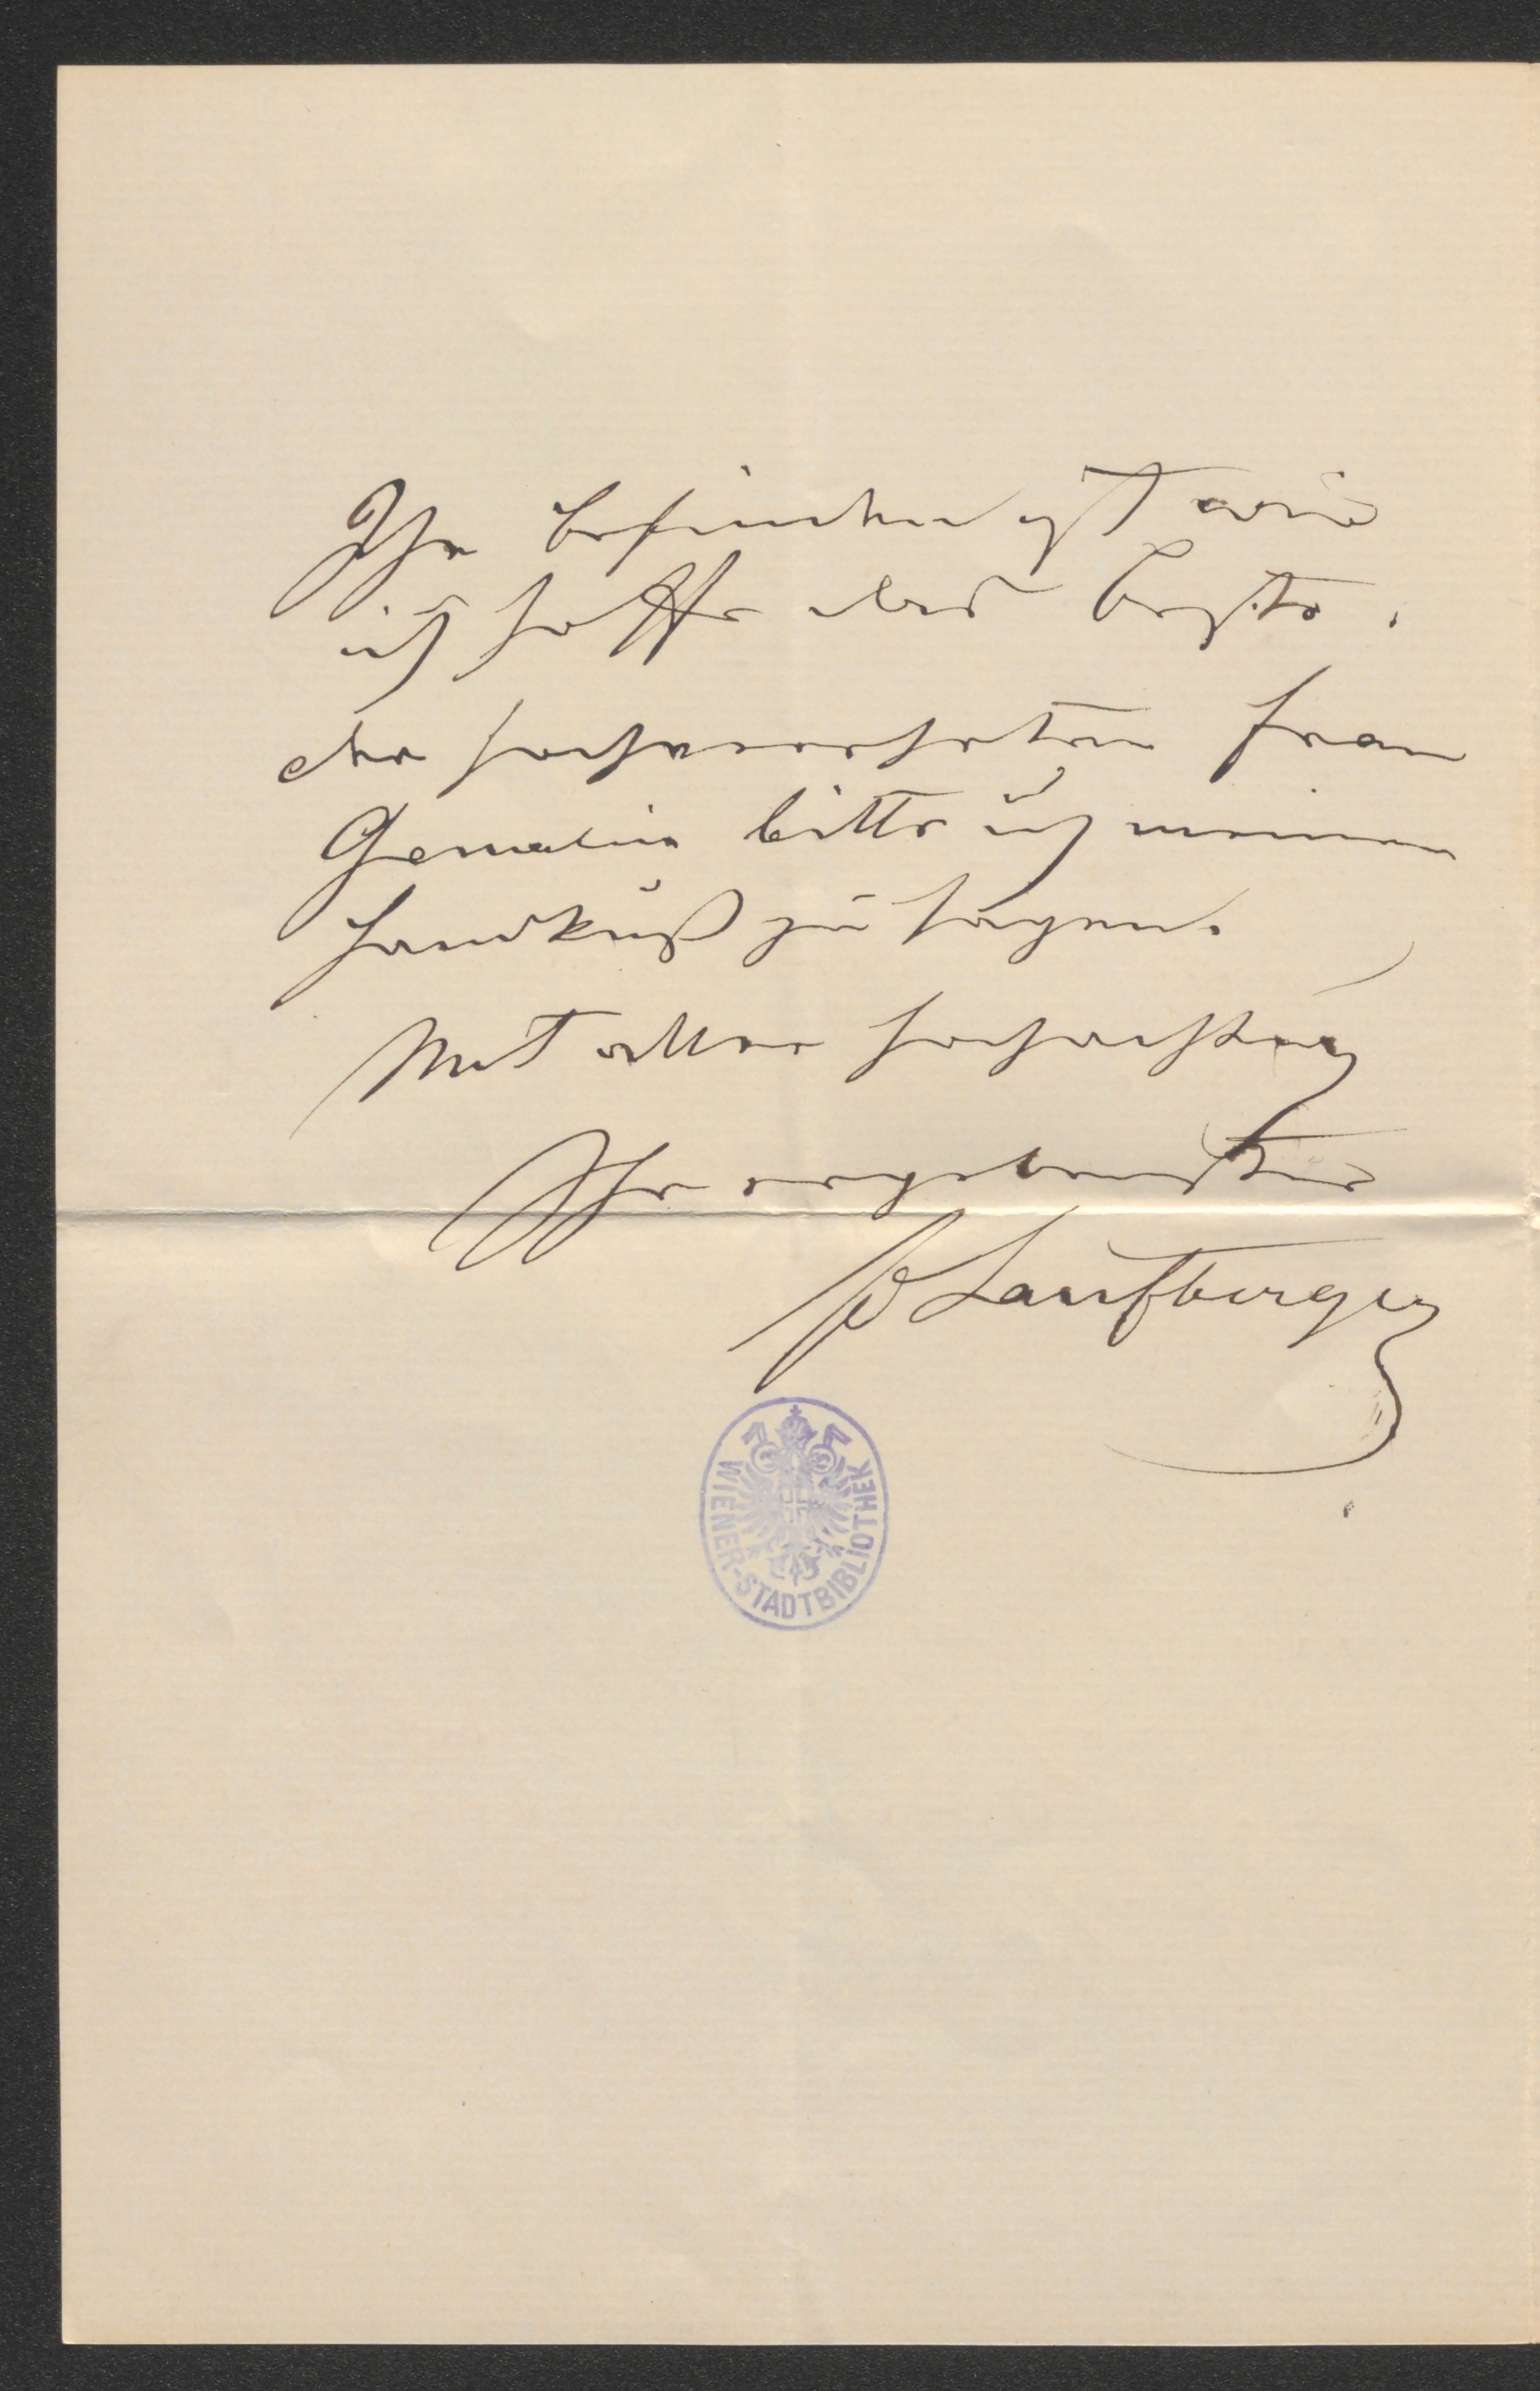 Ihr befinden ist wie
ich hoffe das beste.
der hochverehrten Frau
Gemalin bitte ich meinen
Handkuß zu sagen.
Mit aller Hochachtung
Ihr ergebenster
F Laufberger
WIENER-STADTBIBLIOTHEK